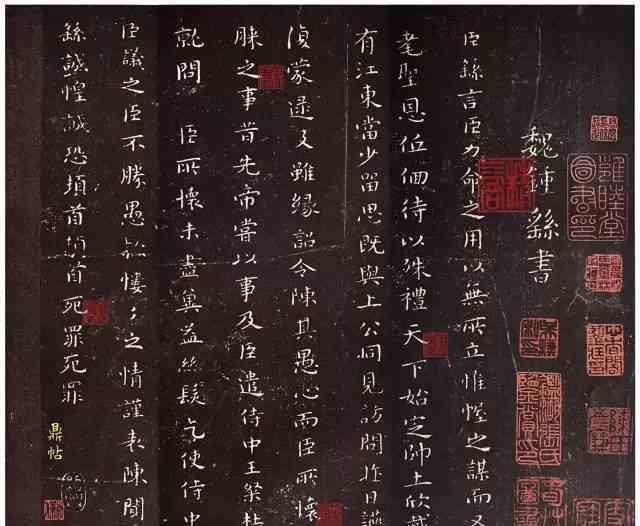 魏鍾繇書
臣繇言臣力命之用以無所立惟幄之謀而又
耄聖恩低佪待以殊禮天下始定師士欣戴
有江東當少留思既與上公同見訪問昨日讌
復蒙逮及雖緣詔令陳其愚心而臣所懷
眛之事昔先帝嘗以事及臣遣侍中王粲杜
就問 臣所懷未盡冀益絲髮乞使侍中
臣議之臣不勝愚款慺々之情謹表陳聞
繇誠惶誠恐頓首頓首死罪死罪
鼎帖